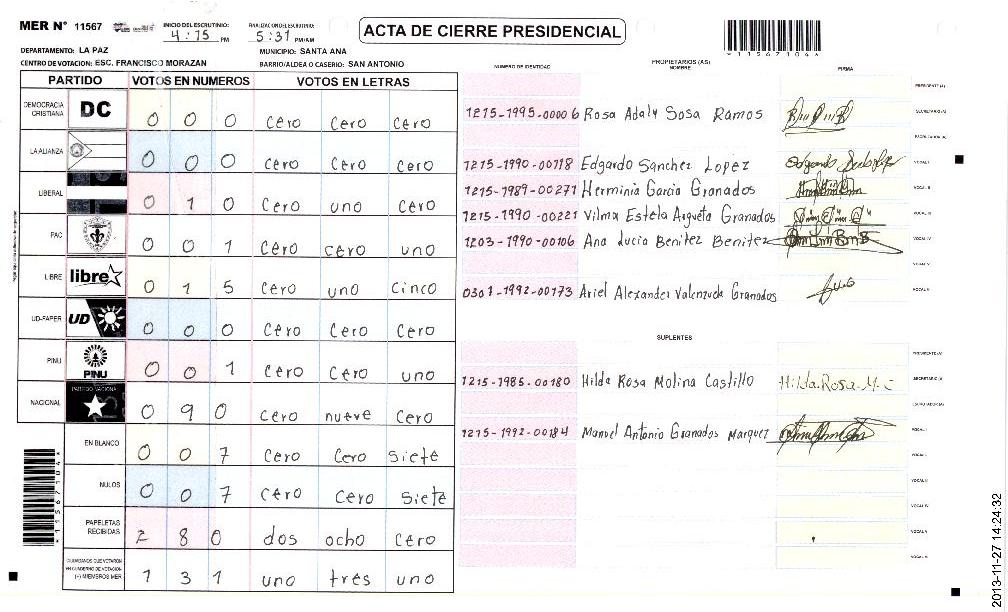 MER Nº 11567
INICIO DEL ESCRUTINIO: 4:15 PM
FINALIZACION DEL ESCRUTINIO: 5:31 PM/AM
ACTA DE CIERRE PRESIDENCIAL
*1156710 4*
DEPARTAMENTO: LA PAZ
MUNICIPIO: SANTA ANA
CENTRO DE VOTACION: ESC. FRANCISCO MORAZAN
BARRIO/ALDEA O CASERIO: SAN ANTONIO
PARTIDO VOTOS EN NUMEROS VOTOS EN LETRAS
DEMOCRACIA CRISTIANA DC 0 0 0 cero cero cero
LA ALIANZA 0 0 0 cero cero cero
LIBERAL 0 1 0 cero uno cero
PAC 0 0 1 cero cero uno
LIBRE libre 0 1 5 cero uno cinco
UD-FAPER UD 0 0 0 cero cero cero
PINU PINU 0 0 1 cero cero uno
NACIONAL PARTIDO NACIONAL 0 9 0 cero nueve cero
EN BLANCO 0 0 7 cero cero siete
NULOS 0 0 7 cero cero siete
PAPELETAS RECIBIDAS 2 8 0 dos ocho cero
CIUDADANOS QUE VOTARON EN CUADERNO DE VOTACION (+) MIEMBROS MER 1 3 1 uno tres uno
NUMERO DE IDENTIDAD
PROPIETARIOS (AS)
NOMBRE
FIRMA
PRESIDENTE (A)
1215-1995-00006 Rosa Adaly Sosa Ramos SECRETARIO (A)
ESCRUTADOR (A)
1215-1990-00118 Edgardo Sanchez Lopez VOCAL I
1215-1989-00271 Herminia Garcia Granados VOCAL II
1215-1990-00221 Vilma Estela Argueta Granados VOCAL III
1203-1990-00106 Ana Lucia Benitez Benitez VOCAL IV
VOCAL V
0301-1992-00173 Ariel Alexander Valenzuela Granados
SUPLENTES
PRESIDENTE (A)
1215-1985-00180 Hilda Rosa Molina Castillo Hilda.Rosa.M.C SECRETARIO (A)
ESCRUTADOR (A)
1215-1992-00184 Manuel Antonio Granados Marquez VOCAL I
VOCAL II
VOCAL IV
VOCAL V
2013-11-27 14:24:32